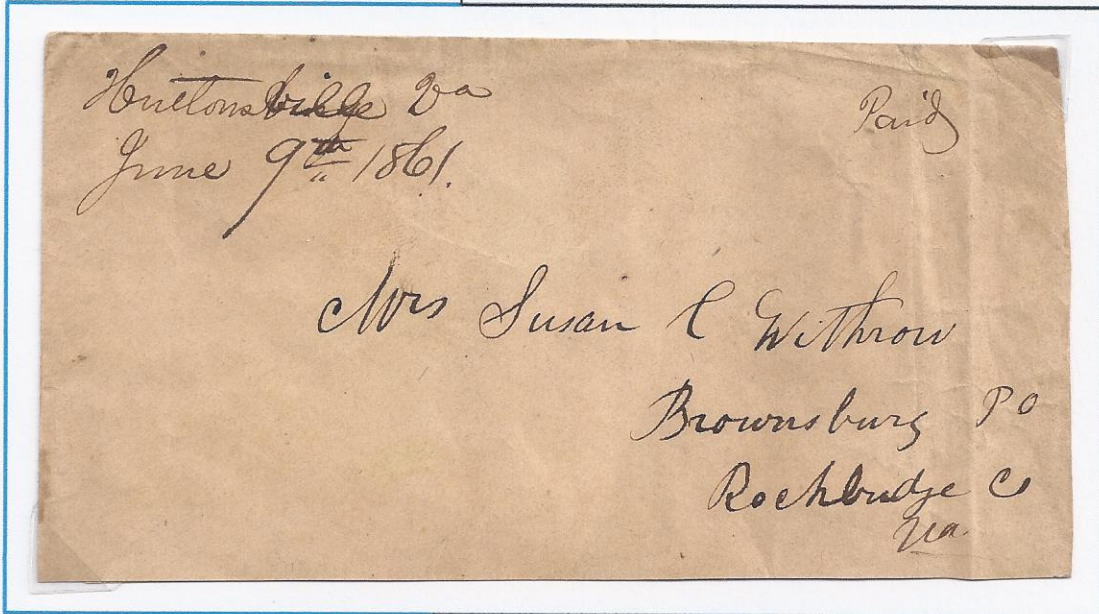 Huttonsville Va
June 9th 1861.
Paid
Mrs Susan C Withrow
Brownsburg P O
Rockbridge Co
Va